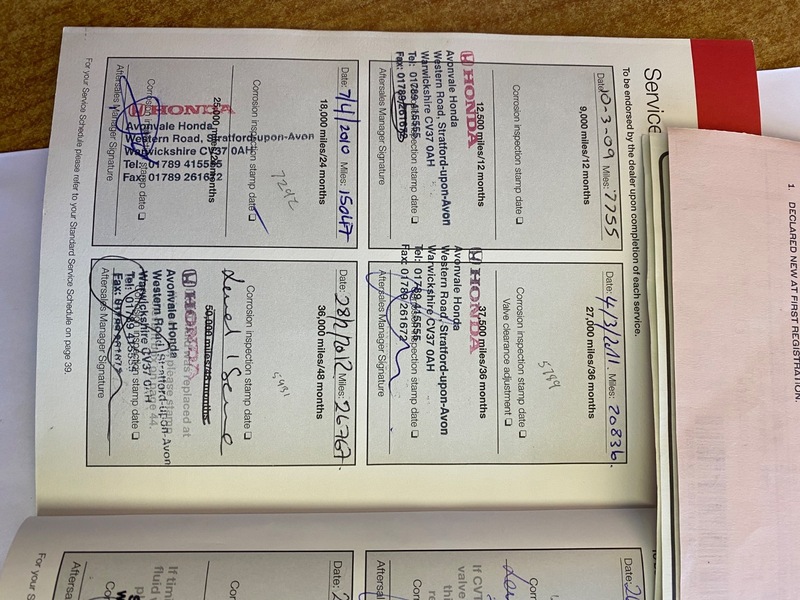 Service
To be endorsed by the dealer upon completion of each service.
Date: 10-3-09 Miles: 7755
9,000 miles/12 months
Corrosion inspection stamp date
12,500 miles/12 months
HONDA
Avonvale Honda
Western Road, Stratford-upon-Avon
Warwickshire CV37 0AH
Tel: 01789 415555
Fax: 01789 261672
Aftersales Manager Signature
Date: 7/4/2010 Miles: 15047
18,000 miles/24 months
Corrosion inspection stamp date
25,000 miles/24 months
HONDA
Avonvale Honda
Western Road, Stratford-upon-Avon
Warwickshire CV37 0AH
Tel: 01789 415555
Fax: 01789 261672
Aftersales Manager Signature
Date: 4/3/2011 Miles: 20836
27,000 miles/36 months
Corrosion inspection stamp date
Valve clearance adjustment
37,500 miles/36 months
HONDA
Avonvale Honda
Western Road, Stratford-upon-Avon
Warwickshire CV37 0AH
Tel: 01789 415555
Fax: 01789 261672
Aftersales Manager Signature
Date: 28/2/2012 Miles: 26767
36,000 miles/48 months
Corrosion inspection stamp date
50,000 miles/48 months
HONDA
Avonvale Honda
Western Road, Stratford-upon-Avon
Warwickshire CV37 0AH
Tel: 01789 415555
Fax: 01789 261672
Aftersales Manager Signature
For your Service Schedule please refer to your Standard Service Schedule on page 39.
1. DECLARED NEW AT FIRST REGISTRATION.
Date:
Date:
If CV
valve
If tim
fluid
For your S